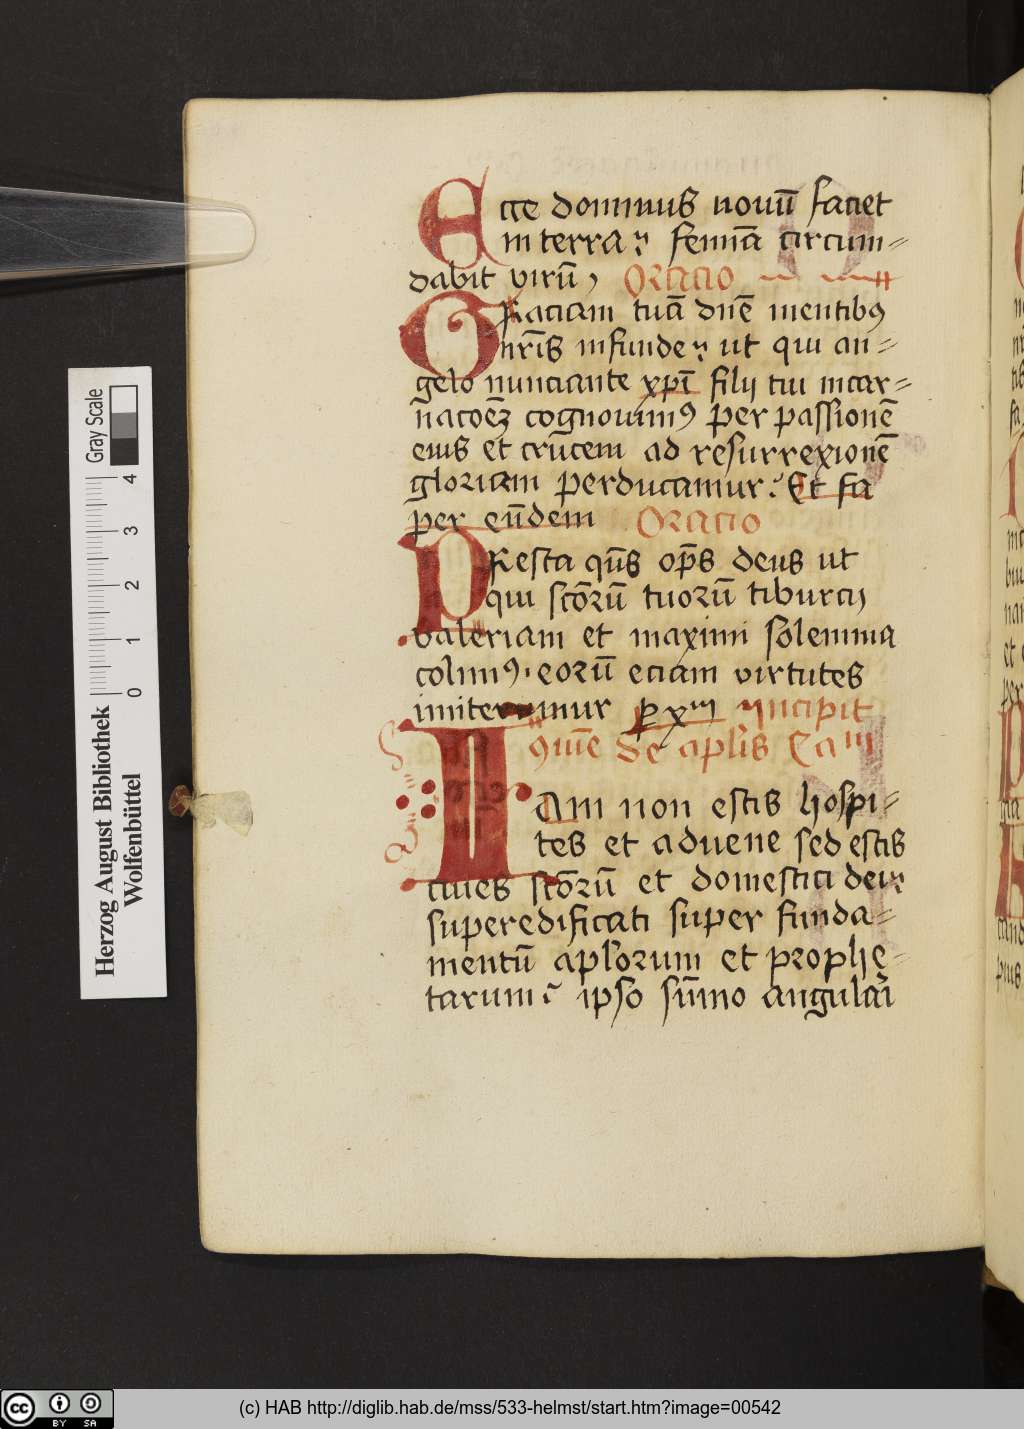 Ecce dominus nouū faciet
in terra : femīa circum=
dabit virū, Oracio
GRaciam tuā dnē mentib9
nrīs infunde : ut qui an=
gelo nunciante xpī filij tui incar=
natoēz cognouim9 per passionē
eius et crucem ad resurrexionē
gloriam perducamur : Et fa
per eūdem Oracio
PResta qūs opš deus ut
qui scōrū tuorū tiburcij
valeriani et maximi solemnia
colim9 . eorū eciam virtutes
imitemur incipit
9mūe de aplīs Ca
IAm non estis hospi=
tes et aduene sed estis
ciues scōrū et domestici dei :
superedificati super funda=
mentū aplorum et prophe=
tarum : ipso sūmo angulāī
Herzog August Bibliothek
Wolfenbüttel
0 1 2 3 4
Gray Scale
cc BY SA
(c) HAB http://diglib.hab.de/mss/533-helmst/start.htm?image=00542